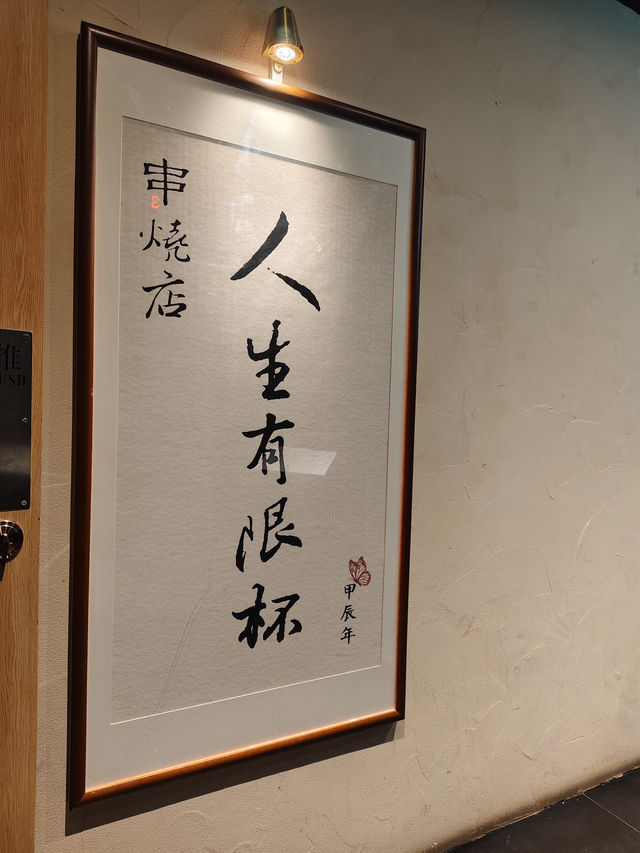 人生有限杯
串燒店
甲辰年
推
USH